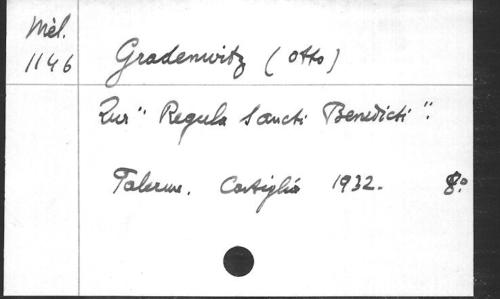 Mél.
1146
Gradenwitz (Otto)
Zur "Regula Sancti Benedicti".
Palerme. Castiglia 1932. 8º